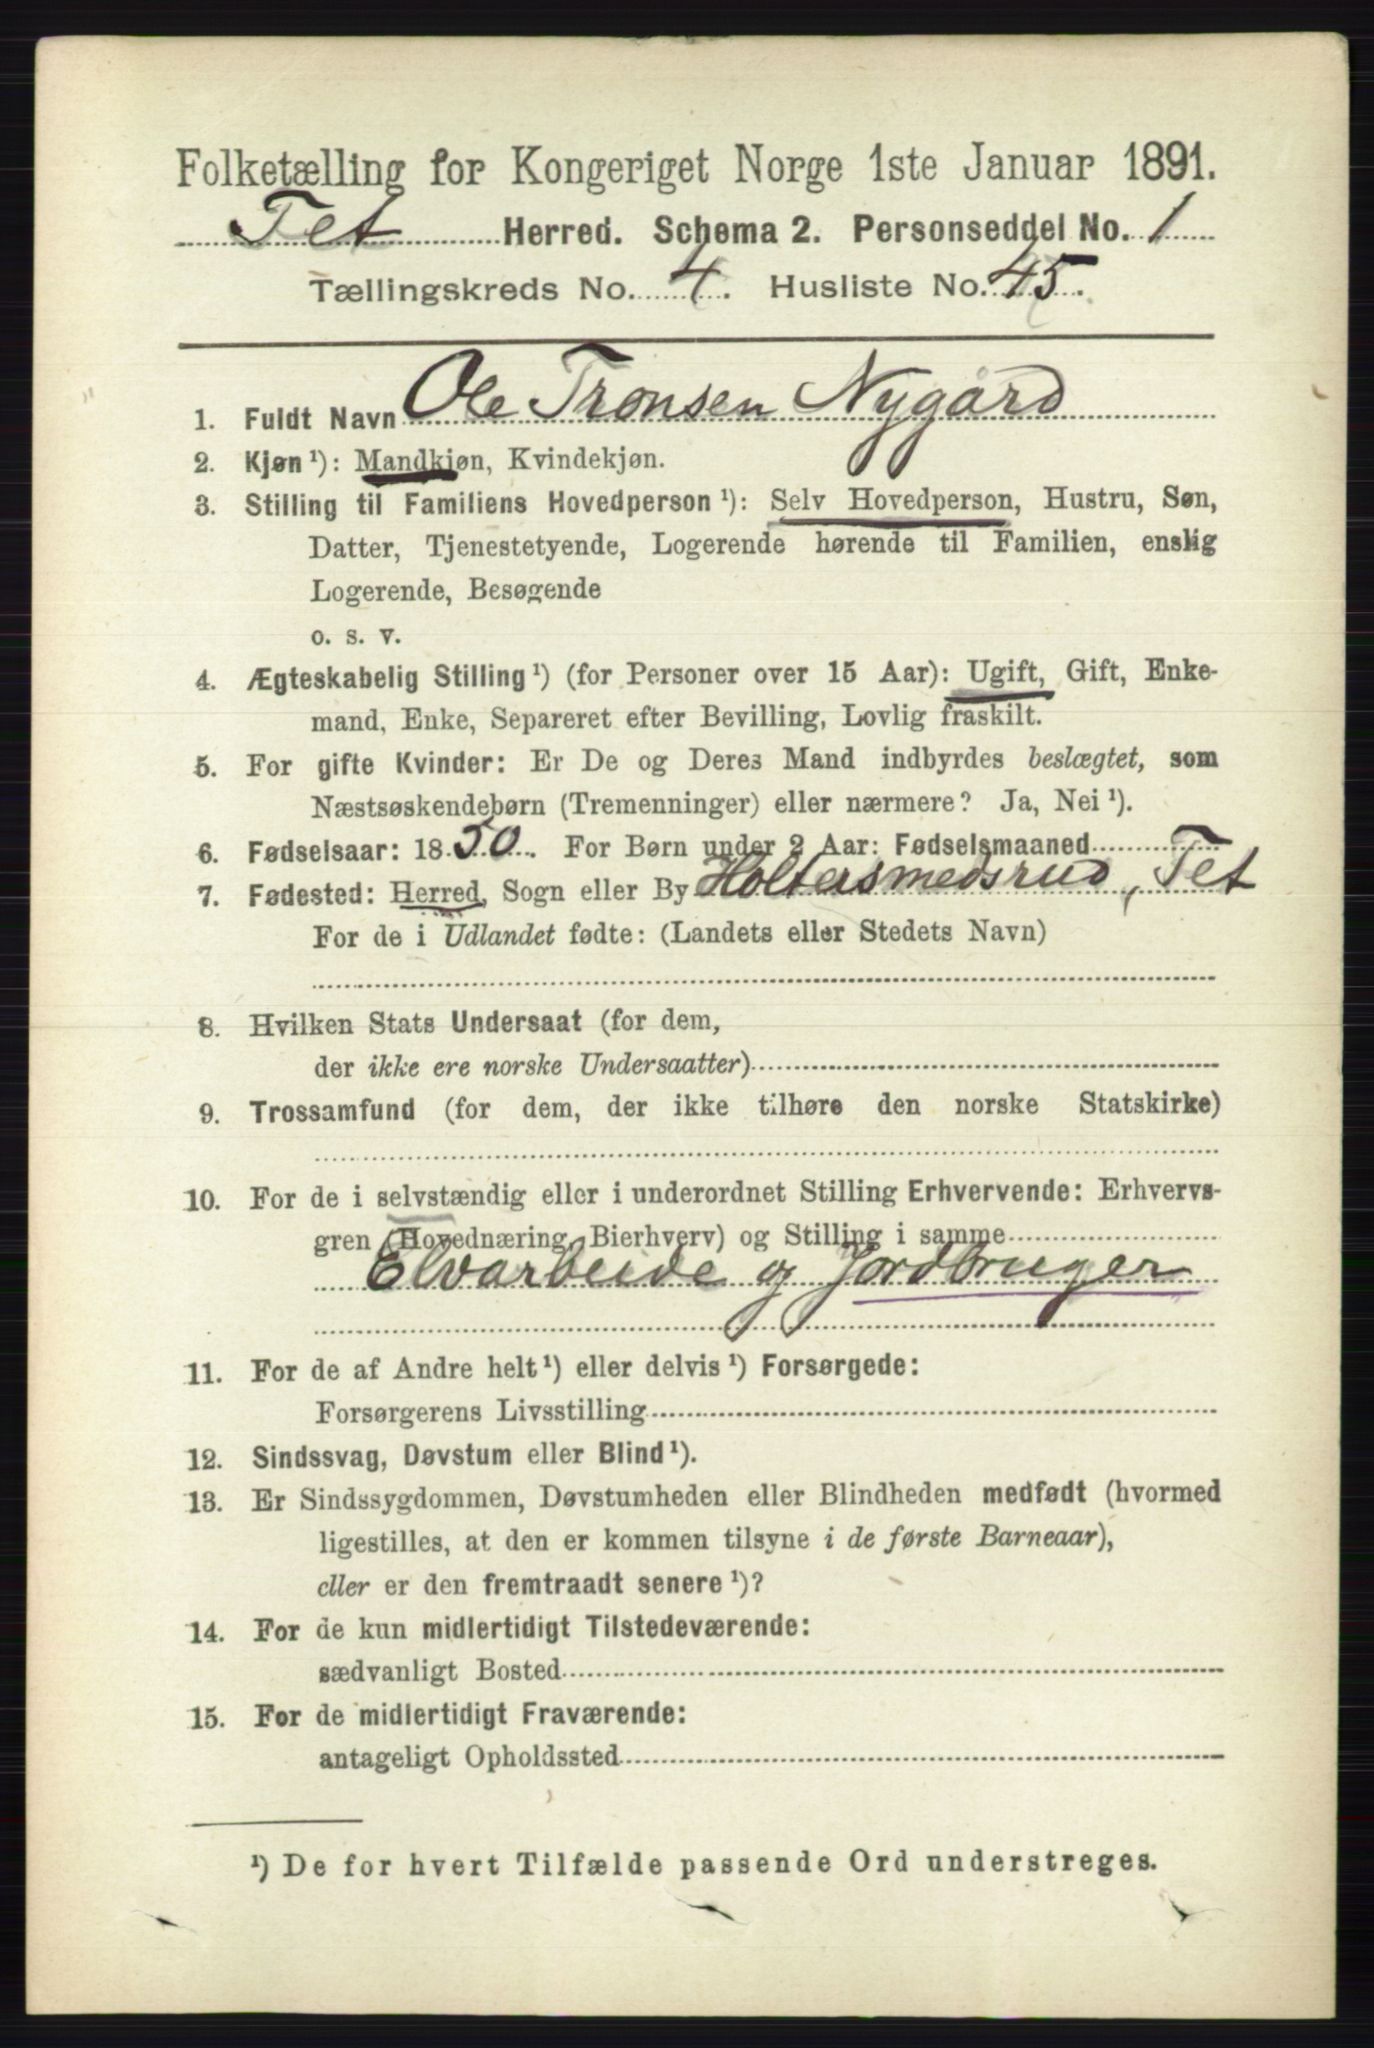 Folketælling for Kongeriget Norge 1ste Januar 1891.
Fet Herred. Schema 2. Personseddel No. 1
Tællingskreds No. 4. Husliste No. 45.
1. Fuldt Navn Ole Tronsen Nygård
2. Kjøn ¹): Mandkjøn, Kvindekjøn.
3. Stilling til Familiens Hovedperson ¹): Selv Hovedperson, Hustru, Søn,
Datter, Tjenestetyende, Logerende hørende til Familien, enslig
Logerende, Besøgende
o. s. v.
4. Ægteskabelig Stilling ¹) (for Personer over 15 Aar): Ugift, Gift, Enke-
mand, Enke, Separeret efter Bevilling, Lovlig fraskilt.
5. For gifte Kvinder: Er De og Deres Mand indbyrdes beslægtet, som
Næstsøskendebørn (Tremenninger) eller nærmere? Ja, Nei ¹).
6. Fødselsaar: 1850. For Børn under 2 Aar: Fødselsmaaned
7. Fødested: Herred, Sogn eller By Holtersmedsrud, Fet
For de i Udlandet fødte: (Landets eller Stedets Navn)
8. Hvilken Stats Undersaat (for dem,
der ikke ere norske Undersaatter)
9. Trossamfund (for dem, der ikke tilhøre den norske Statskirke)
10. For de i selvstændig eller i underordnet Stilling Erhvervende: Erhvervs-
gren (Hovednæring, Bierhverv) og Stilling i samme
Elvarbeide og Jordbruger
11. For de af Andre helt ¹) eller delvis ¹) Forsørgede:
Forsørgerens Livsstilling
12. Sindssvag, Døvstum eller Blind ¹).
13. Er Sindssygdommen, Døvstumheden eller Blindheden medfødt (hvormed
ligestilles, at den er kommen tilsyne i de første Barneaar),
eller er den fremtraadt senere ¹)?
14. For de kun midlertidigt Tilstedeværende:
sædvanligt Bosted
15. For de midlertidigt Fraværende:
antageligt Opholdssted
¹) De for hvert Tilfælde passende Ord understreges.